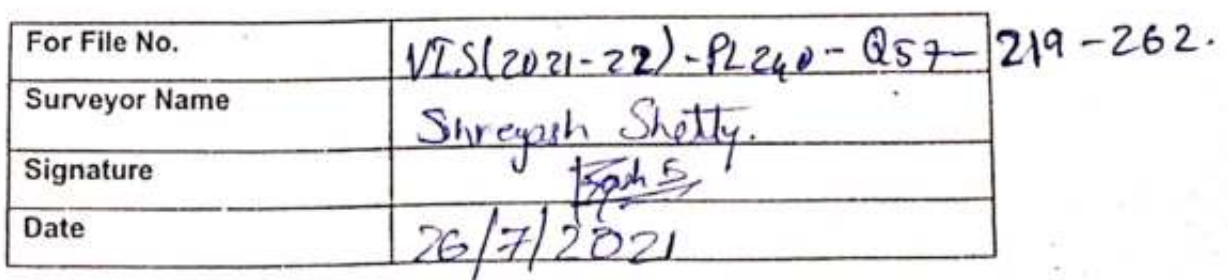 For File No. VIS(2021-22)-PL240-Q57-219-262.
Surveyor Name Shreyash Shetty.
Signature
Date 26/7/2021